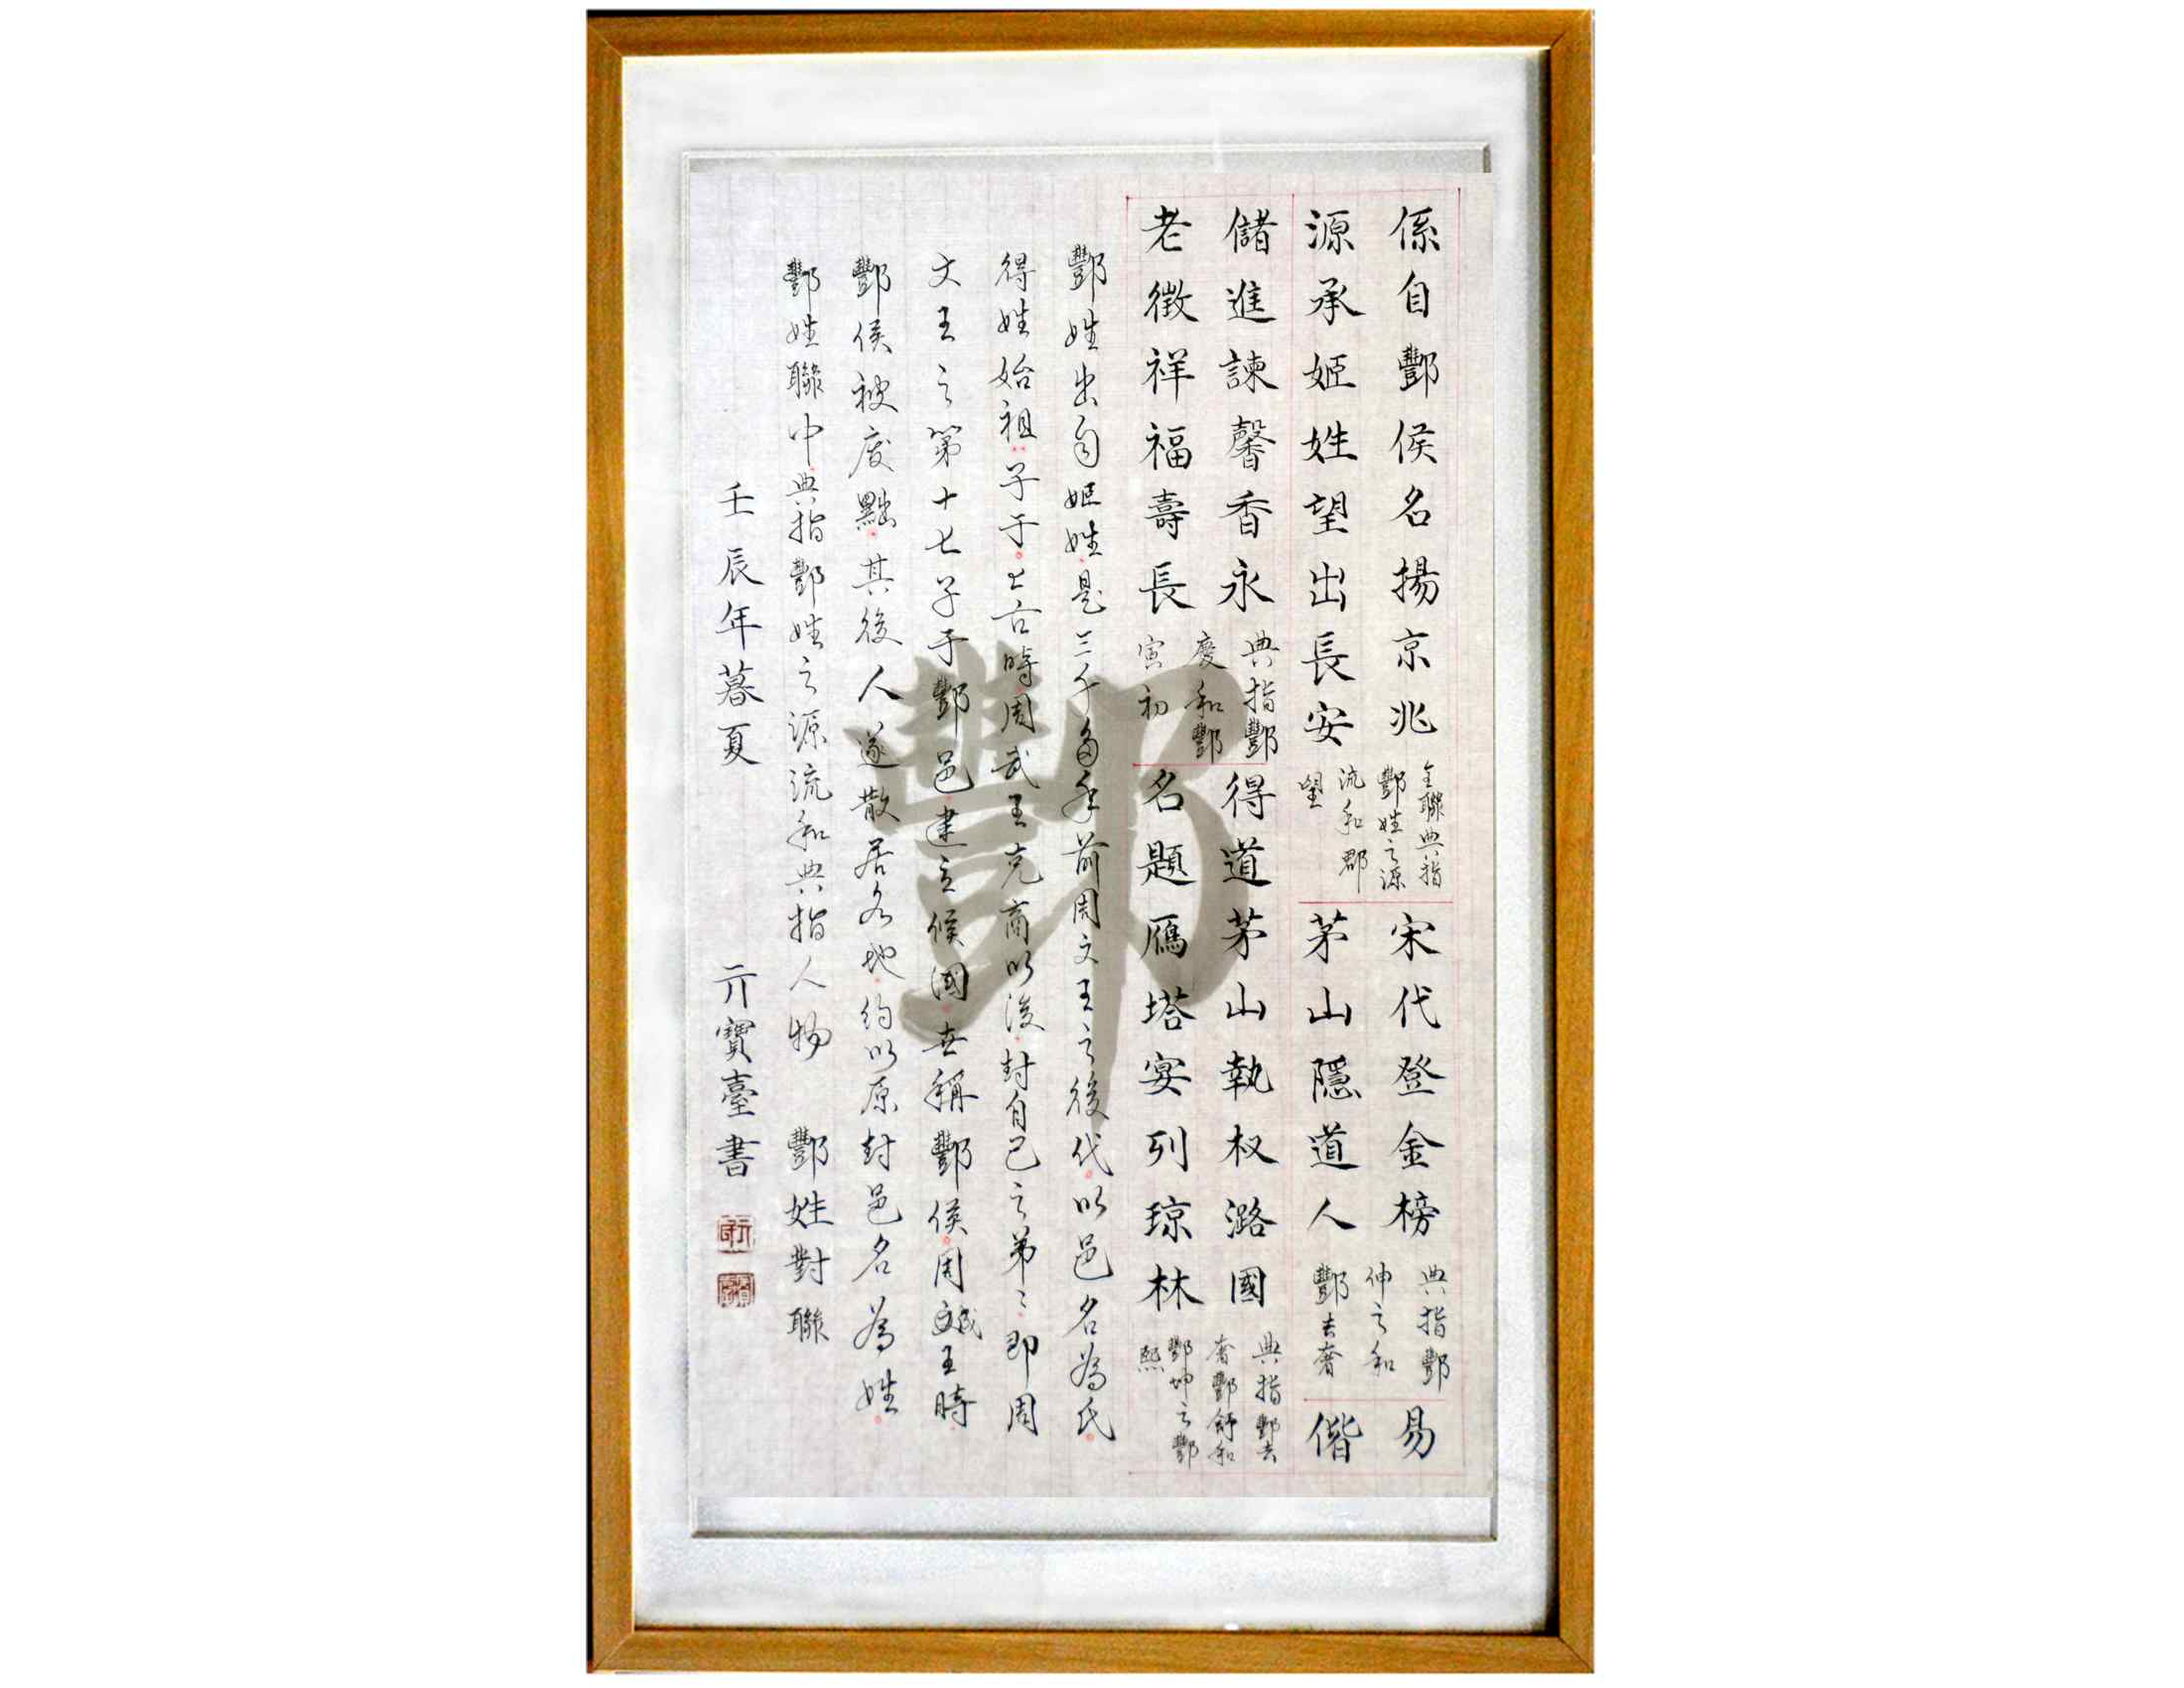 係自酆侯名揚京兆
源承姬姓望出長安
全聯典指
酆姓之源
流和郡
望
宋代登金榜
茅山隱道人
典指酆
伸之和
酆去奢
易
偕
儲進諫馨香永
老徵祥福壽長
典指酆
慶和酆
寅初
得道茅山執权潞國
名題雁塔宴列琼林
典指酆去
奢酆舒和
酆坤之酆
熙
酆姓出自姬姓是三千多年前周文王之後代以邑名為氏
得姓始祖子于上古時周武王克商以後封自己之弟弟即周
文王之第十七子于酆邑建立候國世稱酆侯周成王時
酆侯被廢黜其後人遂散居各地約以原封邑名為姓
酆姓聯中典指酆姓之源流和典指人物 酆姓對聯
壬辰年暮夏 亓寶臺書
酆